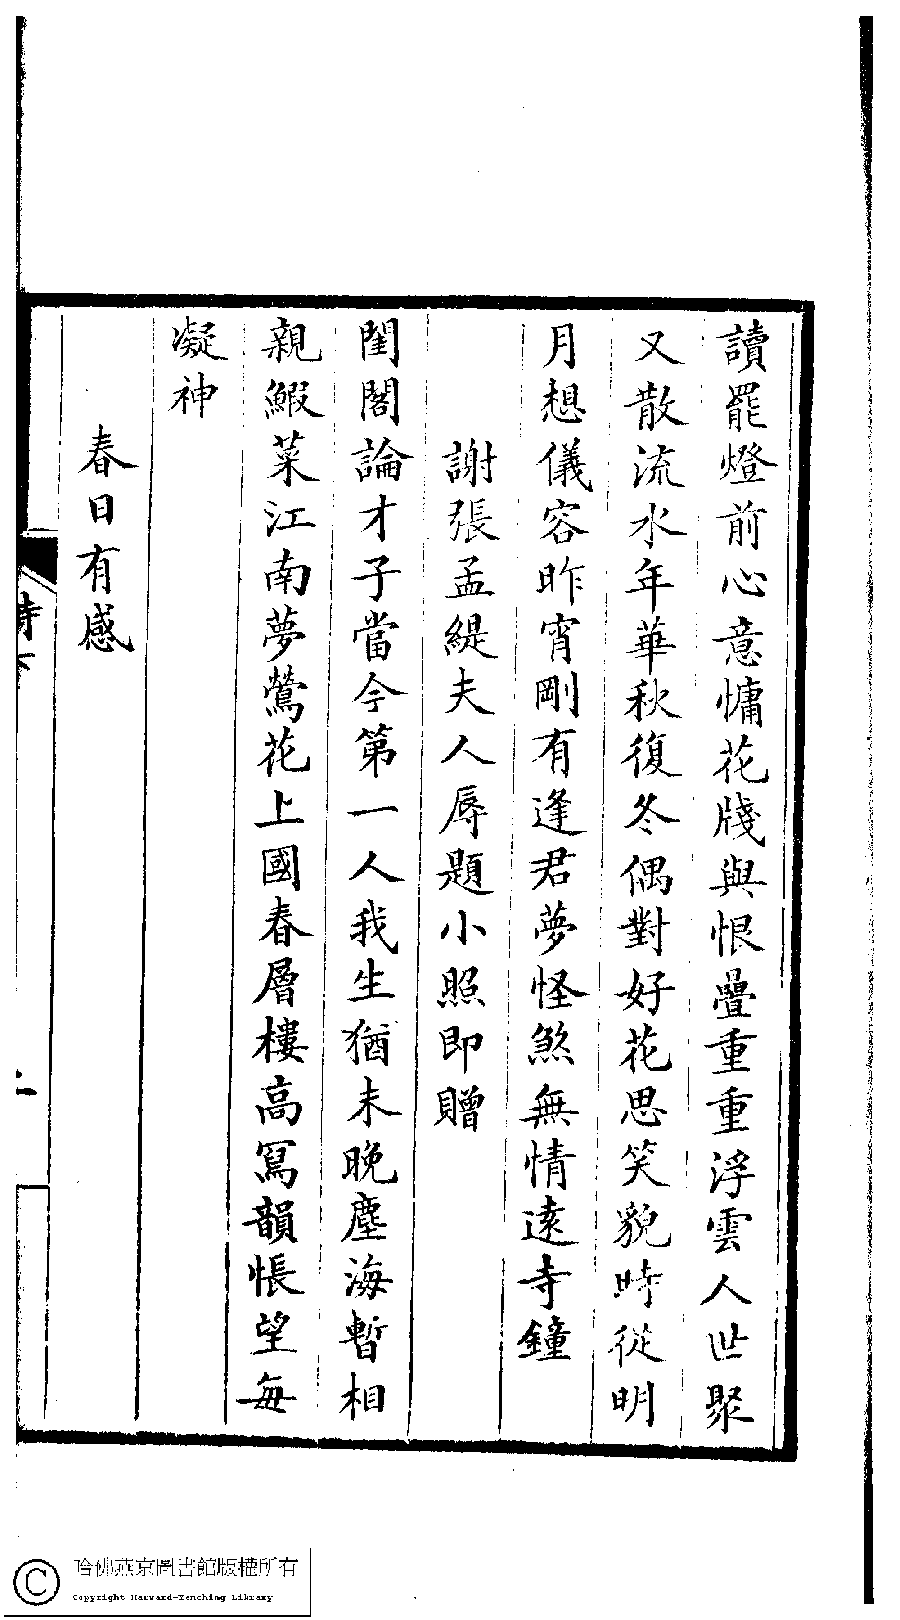 讀罷燈前心意慵花牋與恨疊重重浮雲人世聚
又散流水年華秋復冬偶對好花思笑貌時從明
月想儀容昨宵剛有逢君夢怪煞無情遠寺鐘
謝張孟緹夫人辱題小照即贈
閨閣論才子當今第一人我生猶未晚塵海暫相
親鰕菜江南夢鶯花上國春層樓高寫韻悵望每
凝神
春日有感
詩下
哈佛燕京圖書館版權所有
Copyright Harvard-Yenching Library